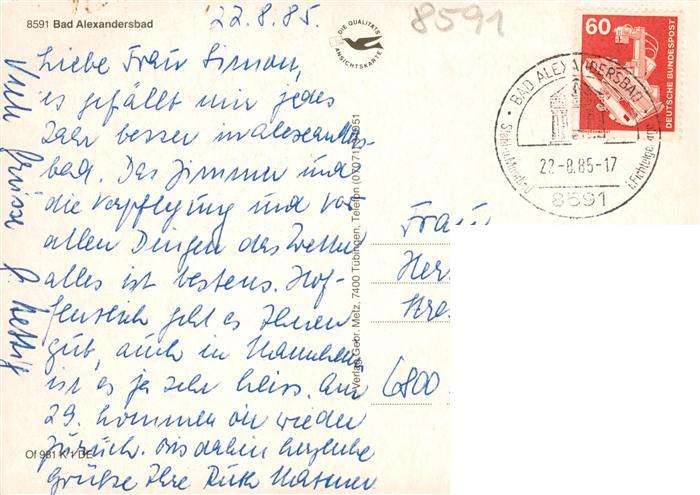 8591 Bad Alexandersbad
22.8.85.
8591
DIE QUALITÄTS
ANSICHTSKARTE
60
DEUTSCHE BUNDESPOST
BAD ALEXANDERSBAD
22.-8.85-17
8591
Liebe Frau Simon,
es gefällt mir jedes
Jahr besser in Alexanders-
bad. Das Zimmer und
die Verpflegung und vor
allen Dingen das Wetter
alles ist bestens. Hof-
fentlich geht es Ihnen
gut, auch in Mannheim
ist es ja sehr heiss. Am
29. kommen wir wieder
zurück. Bis dahin herzliche
Grüße Ihre Ruth
Viele Grüsse
Verlag Gebr. Metz, 7400 Tübingen, Telefon
Frau
Her
6800
Of 981 K 1 DE